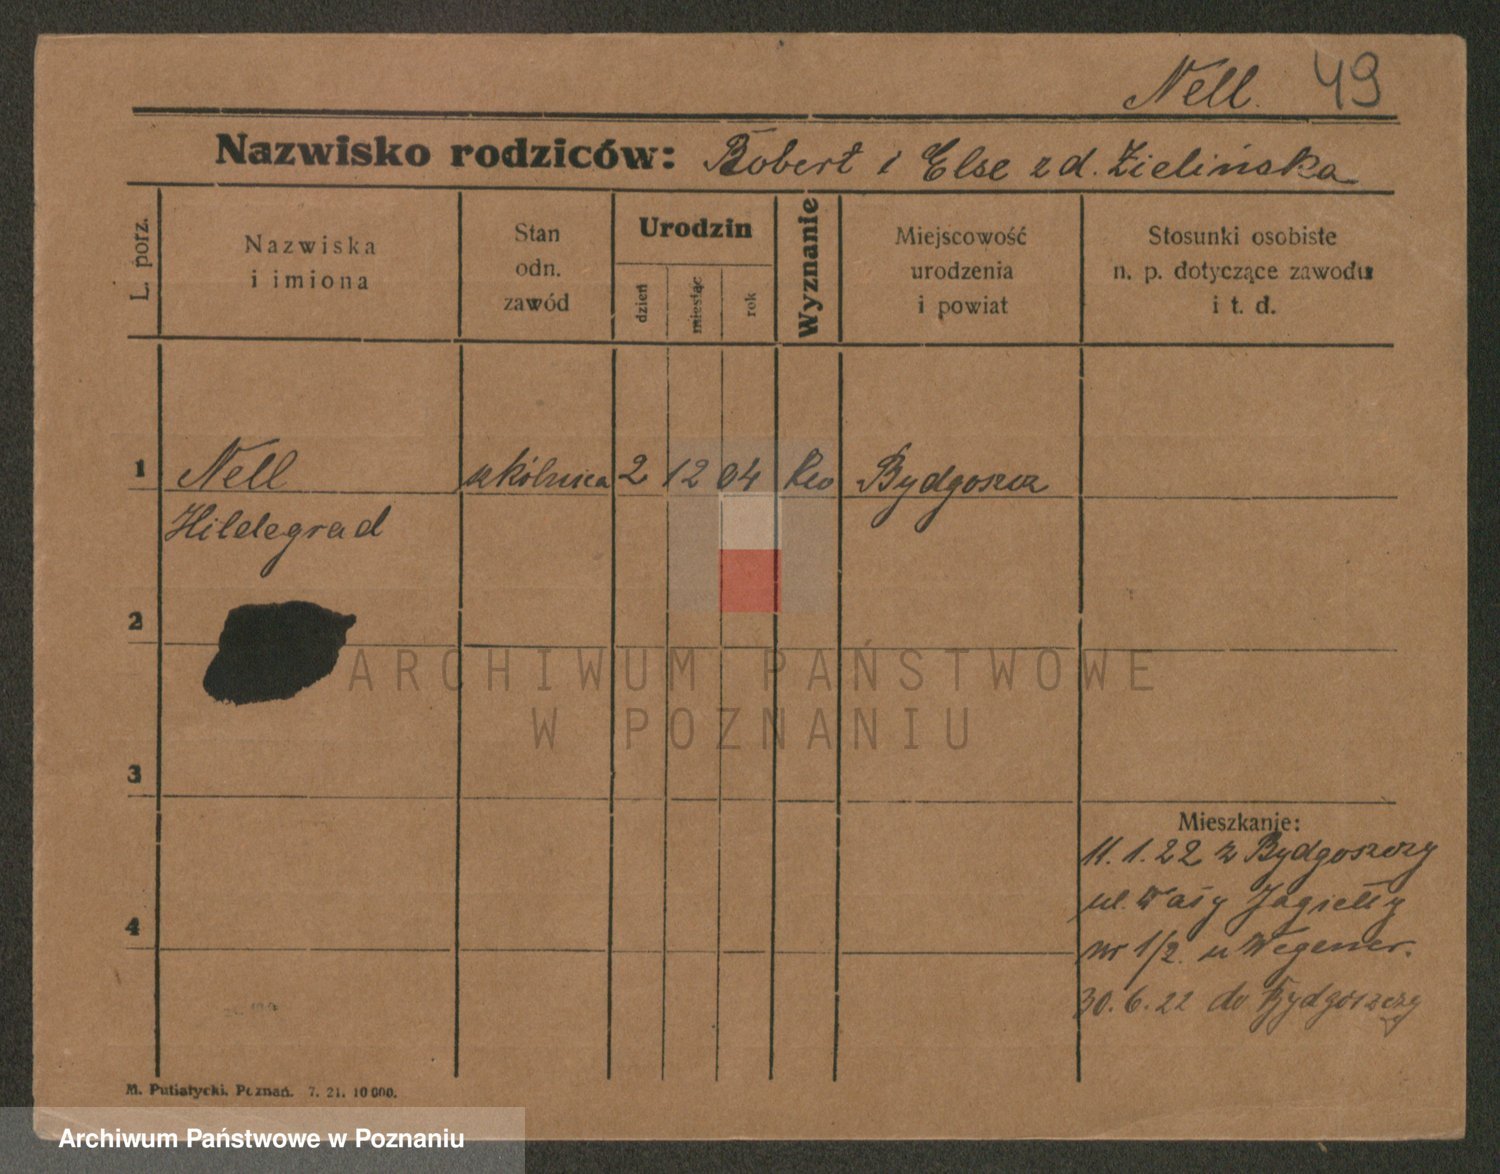 Nell. 49
Nazwisko rodziców: Robert i Else z d. Zielińska
L. porz.
Nazwiska
i imiona
Stan
odn.
zawód
Urodzin
dzień
miesiąc
rok
Wyznanie
Miejscowość
urodzenia
i powiat
Stosunki osobiste
n. p. dotyczące zawodu
i t. d.
1 Nell szkólnica 2 12 04 Bydgoszcz
Hildegrad
2
3
4
Mieszkanie:
11.1.22 z Bydgoszczy
ul. Wały Jagiełły
nr 1/2. u Wegener.
30.6.22 do Bydgoszczy
M. Putiatycki, Poznań. 7. 21. 10 000.
ARCHIWUM PAŃSTWOWE
W POZNANIU
Archiwum Państwowe w Poznaniu